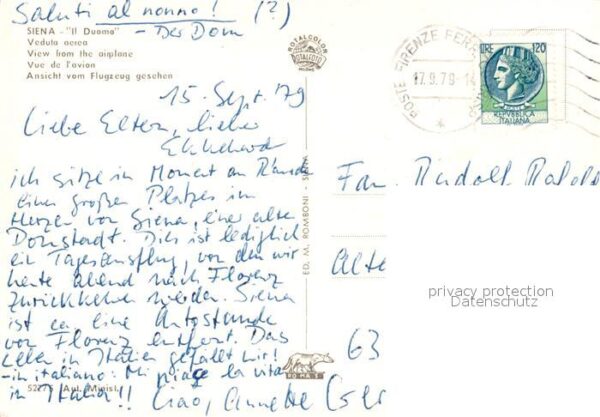 Saluti al nonno! (?)
SIENA - "Il Duomo"
- Der Dom
Veduta aerea
View from the airplane
Vue de l'avion
Ansicht vom Flugzeug gesehen
ROTALCOLOR
ROTALFOTO
MILANO
POSTE FIRENZE FERR
17.9.79 - 1
LIRE 120
REPUBBLICA
ITALIANA
15. Sept. 79
Liebe Eltern, lieber
Ekkehard
ich sitze im Moment am Rande
eines großen Platzes im
Herzen von Siena, einer alten
Domstadt. Dies ist lediglich
ein Tagesausflug, von dem wir
heute abend nach Florenz
zurückkehren werden. Siena
ist ca. eine Autostunde
von Florenz entfernt. Das
Leben in Italien gefällt mir!
- in italiano: Mi piace la vita
in Italia!! Ciao, Annette
ED. M. ROMBONI - SIENA
Fam. Rudolf
Alte
63
privacy protection
Datenschutz
ROMA
(Aut. Minist.